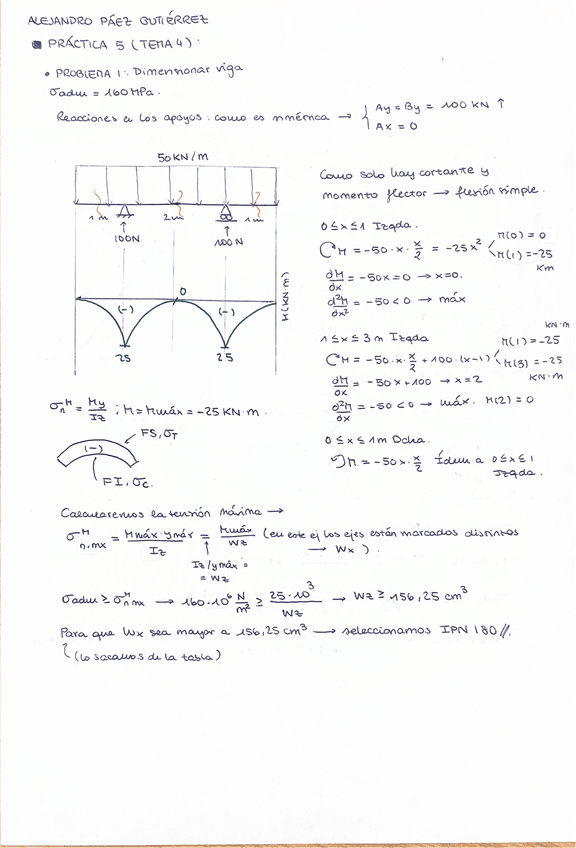 ALEJANDRO PÁEZ GUTIÉRREZ
PRÁCTICA 5 (TEMA 4):
• PROBLEMA 1: Dimensionar viga
σadm = 160 MPa.
Reacciones en los apoyos: como es simétrica → { Ay = By = 100 kN ↑
Ax = 0
50 KN/m
1m 2m 1m
100N 100N
0
(-) (-)
25 25
M(KN·m)
Como solo hay cortante y
momento flector → flexión simple.
0 ≤ x ≤ 1 Izqda.
M = -50·x·x/2 = -25x² M(0) = 0
M(1) = -25
KM
dM/dx = -50x = 0 → x=0.
d²M/dx² = -50 < 0 → máx
1 ≤ x ≤ 3 m Izqda
KN·M
M = -50·x·x/2 + 100·(x-1) M(1) = -25
M(3) = -25
KN·M
dM/dx = -50x + 100 → x=2
d²M/dx² = -50 < 0 → máx. M(2) = 0
0 ≤ x ≤ 1m Dcha.
M = -50x·x/2 Ídem a 0 ≤ x ≤ 1
Izqda.
σn^M = My/Iz ; M = Mmáx = -25 KN·m.
FS, σT
(-)
FI, σc.
Calcularemos la tensión máxima →
σ^M n,mx = Mmáx·ymáx/Iz = Mmáx/Wz (en este ej los ejes están marcados distintos
→ Wx).
Iz/ymáx =
= Wz
σadm ≥ σn^M mx → 160·10⁶ N/m² ≥ 25·10³/Wz → Wz ≥ 156,25 cm³
Para que Wx sea mayor a 156,25 cm³ → seleccionamos IPN 180//.
(lo sacamos de la tabla)